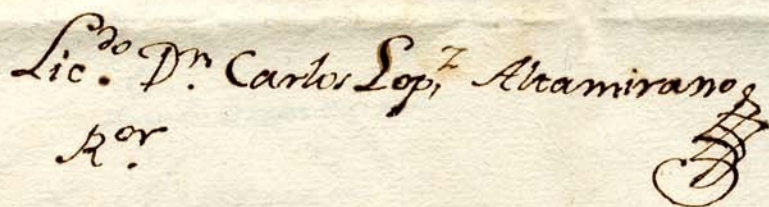 Lic.do Dn. Carlos Lop.z Altamirano
R.or